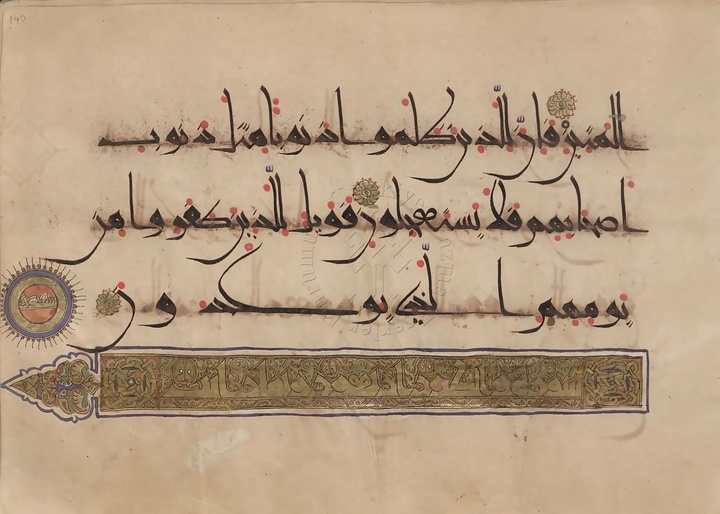 المتين فان للذين ظلموا ذنوبا مثل ذنوب
اصحابهم فلا يستعجلون فويل للذين كفروا من
يومهم الذي يوعدون